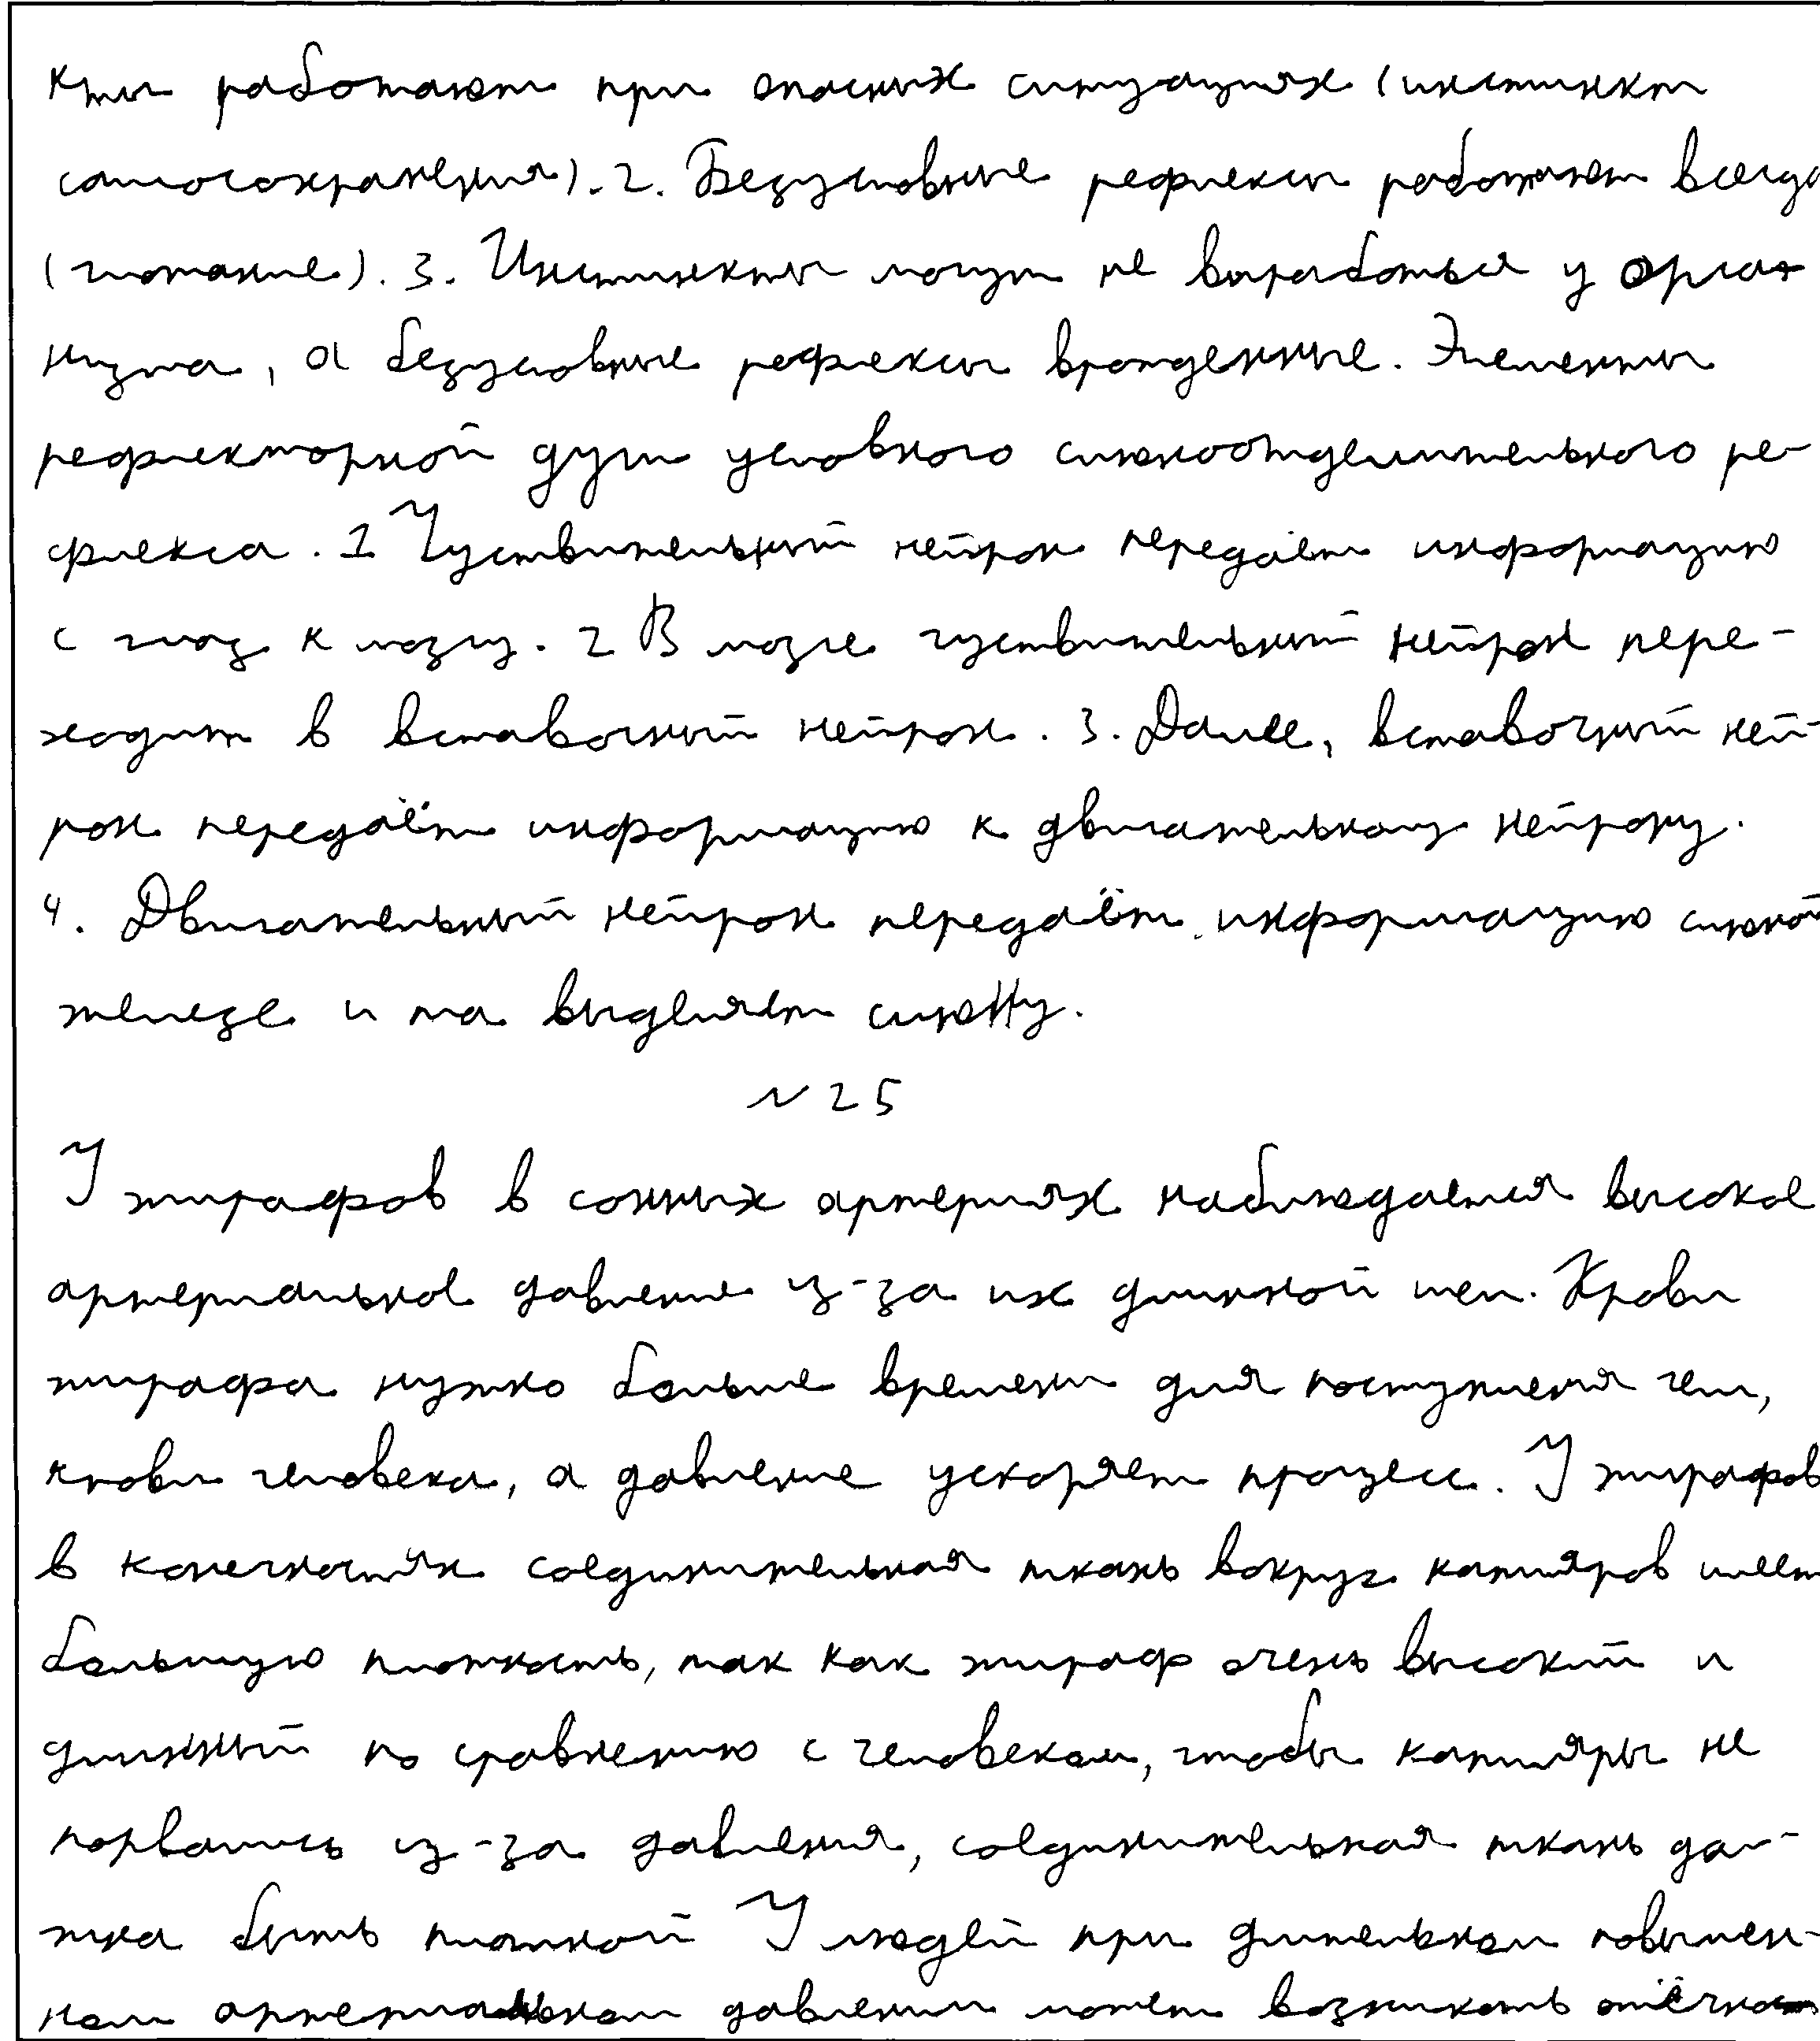 кты работают при опасных ситуациях (инстинкт
самосохранения). 2. Безусловные рефлексы работают всегда
(глотание). 3. Инстинкты могут не выработься у орга-
низма, а безусловные рефлексы врожденные. Элементы
рефлекторной дуги условного слюноотделительного ре-
флекса. 1 Чуствительный нейрон передаёт информацию
с глаз к мозгу. 2 В мозге чуствительный нейрон пере-
ходит в вставочный нейрон. 3. Далее, вставочный ней-
рон передаёт информацию к двигательному нейрону.
4. Двигательный нейрон передаёт информацию слюной
железе и та выделяет слюну.
№ 25
У жирафов в сонных артериях наблюдается высокое
артериальное давление из-за их длинной шеи. Крови
жирафа нужно больше времени для поступления чем,
крови человека, а давление ускоряет процесс. У жирафов
в конечностях соединительная ткань вокруг капиляров имеет
большую плотность, так как жираф очень высокий и
длинный по сравнению с человеком, чтобы капиляры не
порвались из-за давления, соединительная ткань дол-
жна быть плотной У людей при длительном повышен-
ном артериальном давлении может возникать